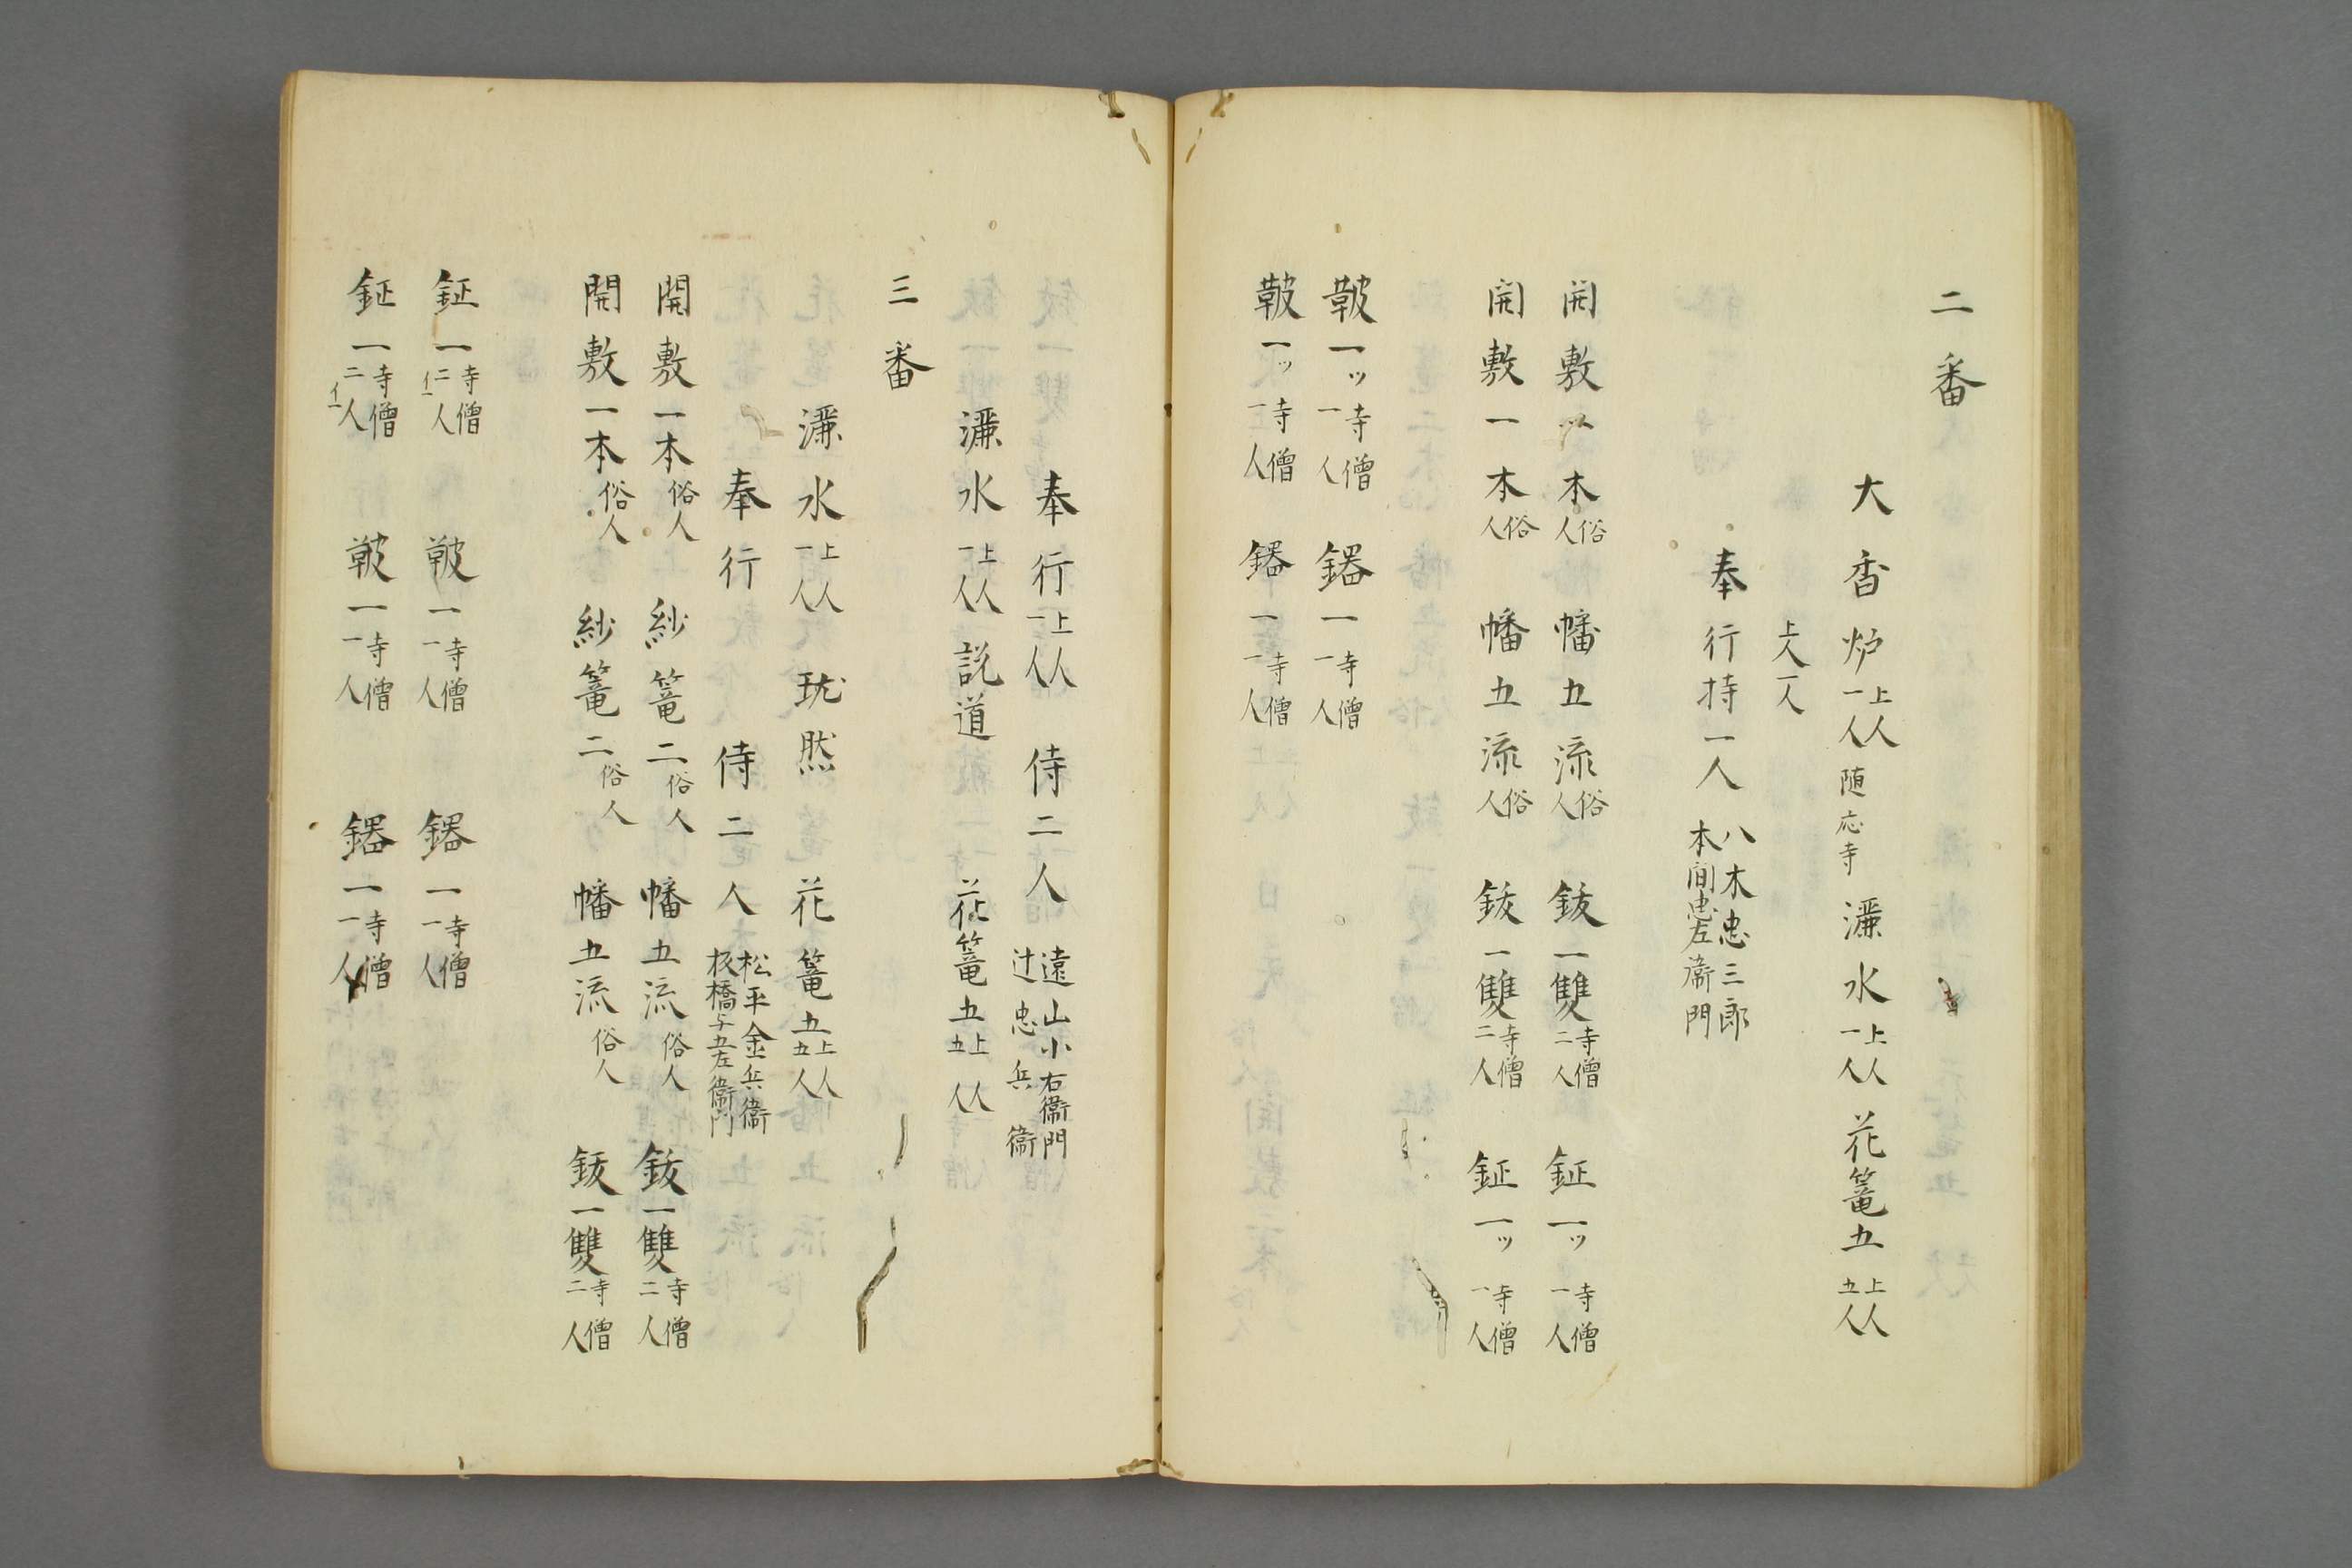 二番
大香炉 上人一人 随応寺 濂水 上人一人 花篭五 上人五人
上人一人
奉行持一人 八木忠三郎 本間忠左衛門
開敷一本 俗人 幡五流 俗人 鈸一雙 寺僧二人 鉦一ッ 寺僧一人
開敷一本 俗人 幡五流 俗人 鈸一雙 寺僧二人 鉦一ッ 寺僧一人
鞁一ッ 寺僧一人 鐃一 寺僧一人
鞁一ッ 寺僧一人 鐃一 寺僧一人
奉行 上人一人 侍二人 遠山小右衛門 辻忠兵衛
濂水 上人一人 説道 花篭五 上人五人
三番
濂水 上人一人 玧然 花篭五 上人五人
奉行 侍二人 松平金兵衛 板橋与五左衛門
開敷一本 俗人 紗篭二 俗人 幡五流 俗人 鈸一雙 寺僧二人
開敷一本 俗人 紗篭二 俗人 幡五流 俗人 鈸一雙 寺僧二人
鉦一 寺僧二人 イ一 鞁一 寺僧一人 鐃一 寺僧一人
鉦一 寺僧二人 イ一 鞁一 寺僧一人 鐃一 寺僧一人